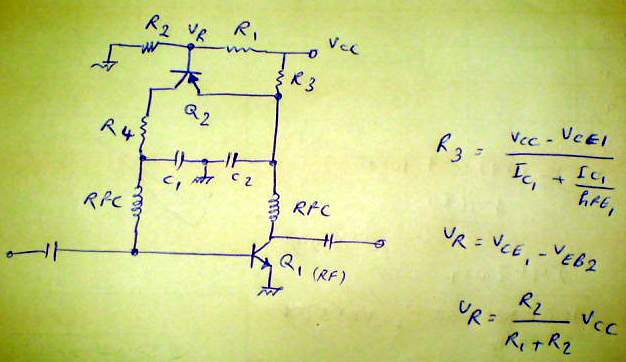 R2 VR R1
VCC
R3
Q2
R4
C1 C2
RFC RFC
Q1 (RF)
R3 = (VCC - VCE1) / (IC1 + IC1/hFE1)
VR = VCE1 - VEB2
VR = R2 / (R1 + R2) VCC